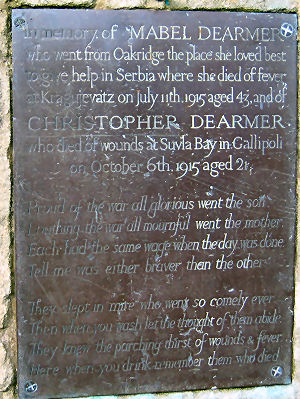 In memory of MABEL DEARMER
who went from Oakridge the place she loved best
to give help in Serbia where she died of fever
at Kragujevatz on July 11th, 1915 aged 43, and of
CHRISTOPHER DEARMER
who died of wounds at Suvla Bay in Gallipoli
on October 6th, 1915 aged 21,
Proud of the war all glorious went the son
Loathing the war all mournful went the mother.
Each had the same wage when the day was done.
Tell me was either braver than the other
They slept in mire who went so comely ever
Then when you wash let the thought of them abide
They knew the parching thirst of wounds & fever
Here when you drink remember them who died